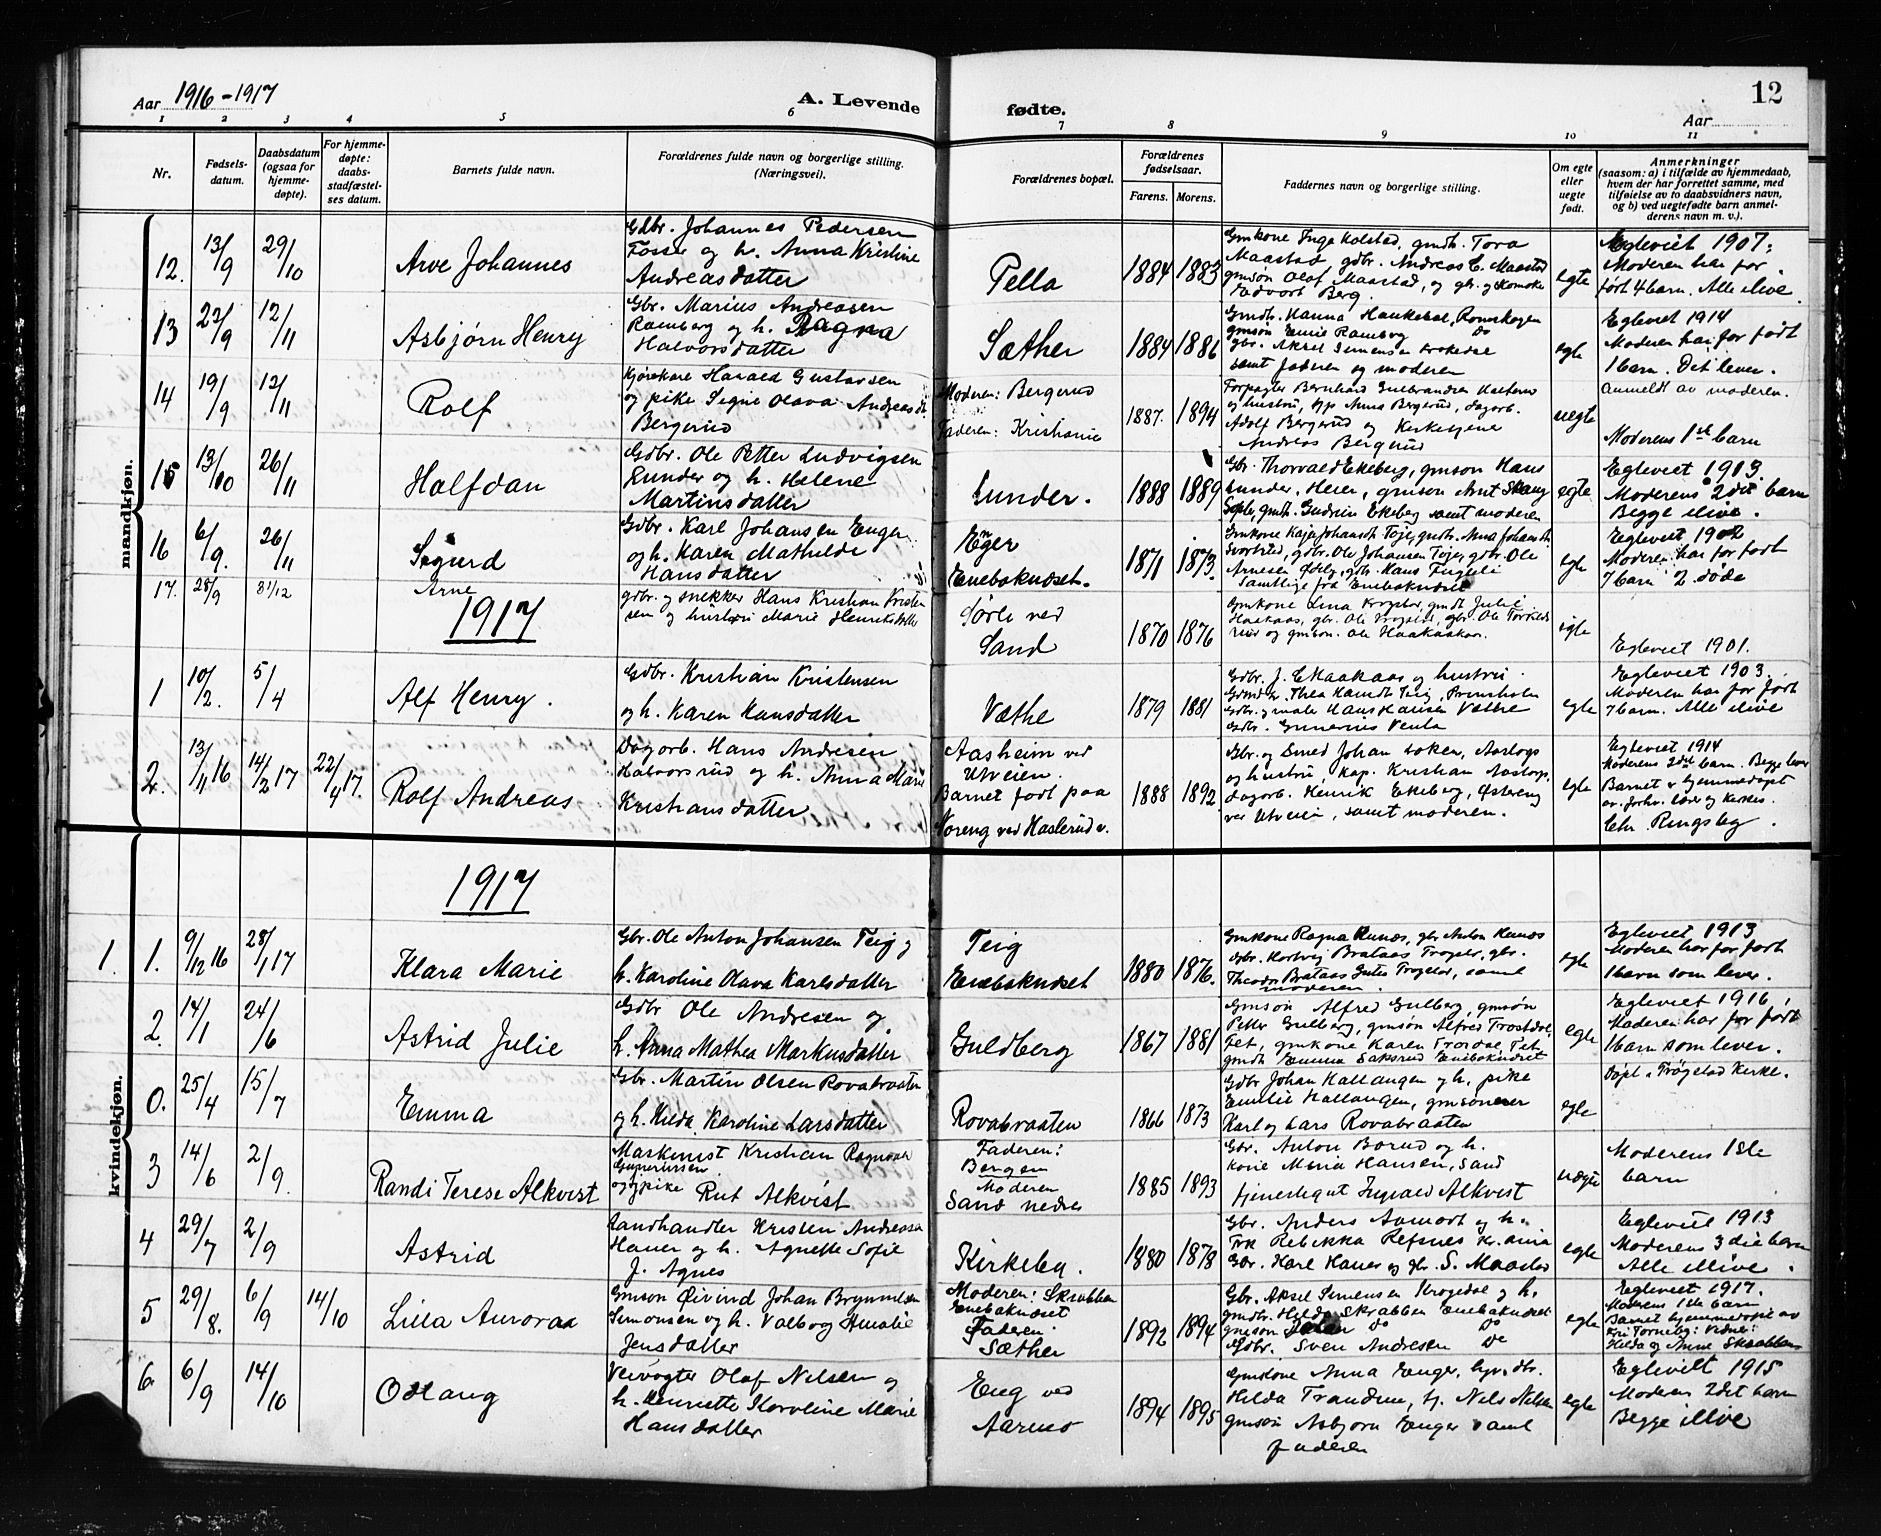 Aar 1916-1917
A. Levende
fødte.
12
Aar
1 2 3 4 5 6 7 8 9 10 11
Nr.
Fødsels-
datum.
Daabsdatum
(ogsaa for
hjemme-
døpte).
For hjemme-
døpte:
daabs-
stadfæstel-
ses datum.
Barnets fulde navn.
Forældrenes fulde navn og borgerlige stilling.
(Næringsvei).
Forældrenes bopæl.
Forældrenes
fødselsaar.
Farens. Morens.
Faddernes navn og borgerlige stilling.
Om egte
eller
uegte
født.
Anmerkninger
(saasom: a) i tilfælde av hjemmedaab,
hvem der har forrettet samme, med
tilføielse av to daabsvidners navn,
og b) ved uegtefødte barn anmel-
derens navn m. v.).
mandkjøn.
12. 13/9 29/10
Arve Johannes
Gdbr. Johannes Pedersen
Fosser og h. Anna Kristine
Andreasdatter
Pella
1884 1883
Gmkone Inga Kolstad, gmdt. Tora
Maastad gdbr. Andreas E. Maastad
gmsøn Olaf Maastad, og
Edvart Berg.
egte
Egteviet 1907.
Moderen har før
født 4 barn. Alle ilive.
13 22/9 12/11
Asbjørn Henry
Gbr. Marius Andreasen
Ramberg og h. Ragna
Halvorsdatter
Sæther
1884 1886
Gmdt. Hanna
gmsøn Ramberg do
gbr. Aksel Simensen Krokedal
samt faderen og moderen
egte
Egteviet 1914
Moderen har før født
1 barn. Det lever.
14 19/9 12/11
Rolf
Kjørekare Harald Gustavsen
og pike Signe Olava Andreasdt
Bergerud
Moderen: Bergerud
Faderen: Kristiania
1887. 1894
Forpagter Bernhard Gulbrandsen
og hustru, Anna Bergerud, dagarb.
Adolf Bergerud og Kirketjener
Andreas Bergerud
uegte
Anmeldt av moderen.
Moderens 1ste barn
15 13/10 26/11
Halfdan
Gdbr. Ole Petter Ludvigsen
Lunder og h. Helene
Martinsdatter
Lunder.
1888 1889
Gbr. Thorvald Ekeberg, gmsøn Hans
Lunder, Heier, gmsøn
gmdt. Gudrun Ekeberg samt moderen
egte
Egteviet 1913.
Moderens 2det barn
Begge ilive.
16 6/9. 26/11
Sigurd
Gdbr. Karl Johansen Enger
og h. Karen Mathilde
Hansdatter
Enger
Enebaknæset.
1871 1873.
Gmkone Kaja Johansdt Teje, gmdt. Anna Johansdt
gdbr. Ole Johansen Teje, gdbr. Ole
Arnesen gbr. Hans
Samtlige fra Enebaknæset
egte
Egteviet 1902
Moderen har før født
7 barn 2 døde
17. 28/9 31/12
Arne
gdbr. og snekker Hans Kristian Kristen
sen og hustru Marie Henriksdatter
Sørli ved
Sand
1870 1876
Gmkone Lina gmdt Julie
Haakaas, gbr. Ole gbr. Ole
og gmsøn. Ole
egte
Egteviet 1901.
1917
1 10/2. 5/4
Alf Henry.
Gdbr. Kristian Kristensen
og h. Karen Hansdatter
Væthe
1879 1881
Gdbr. J. E. Haakaas og hustru.
Thea Teig,
Gdbr. og maler Hans Hansen Væthe
Gdbr. Gunerius
egte
Egteviet 1903.
Moderen har før født
7 barn. Alle ilive
2. 13/11 16 14/2 17 22/4 17.
Rolf Andreas
Dagarb. Hans Andresen
Halvorsrud og h. Anna Marie
Kristiansdatter
Aasheim ved
Utveien.
Barnet født paa
Noreng ved Haslerud v.
1888 1892
Gbr. og smed Johan
og hustru, Kap. Kristian
dagarb. Henrik Ekeberg, Østereng
ved Utveien, samt moderen.
egte
Egteviet 1914
Moderens 2det barn. Begge lever
Barnet er hjemmedøpt
av forhv. lærer og kirkes.
Chr. Ringsby.
kvindekjøn.
1917
1. 1. 9/12 16 28/1 17
Klara Marie
Gbr. Ole Anton Johansen Teig og
h. Karoline Olava Karlsdatter
Teig
Enebaknæset
1880 1876.
Gmkone Ragna Runæs, gbr Anton Runæs
gbr. Hartvig Brataas Trøgster, gbr.
Theodor Brataas Trøgstad, samt
moderen.
egte
Egteviet 1913.
Moderen har før født
1 barn som lever.
2. 14/1 24/6
Astrid Julie
Gdbr Ole Andresen og
h. Anna Mathea Markusdatter
Guldberg
1867 1881
Gmsøn Alfred Gulberg, gmsøn
Petter Gulberg, gmsøn Alfred Trosdal
Fet, gmkone Karen Trosdal Fet
gmdt Emma Saksrud Enebaknæset
egte
Egteviet 1916,
Moderen har før født
1 barn som lever.
0. 25/4 15/7
Emma
Gbr. Martin Olsen Rovabraaten
og h. Hilda Karoline Larsdatter
Rovabraaten
1866 1873
Gdbr Johan Hallangen og h. pike
Emilie Hallangen, gmsønner
Karl og Lars Rovabraaten
egte
Døpt i Trøgstad Kirke.
3 14/6 2/9.
Randi Terese Alkvist
Maskinist Kristian Ragnvald
Gunerussen
og pike Rut Alkvist
Faderen:
Bergen
Moderen
Sand nedre
1885 1893
Gbr. Anton Borud og h.
Kone Mina Hansen, Sand
tjenestegut Ingvald Alkvist
uægte
Moderens 1ste
barn
4 29/7 2/9
Astrid
Landhandler Kristen Andreassen
Hauer og h. Agnethe Sofie
f. Agnes
Kirkeby.
1880 1878
Gbr. Anders Aamodt og h.
Frk Rebekka Refsnes Kr.ania
Gbr. Karl Hauer og gbr. S. Maastad
egte
Egteviet 1913
Moderens 3die barn
Alle ilive.
5 29/8. 6/9 14/10
Lilla Auroraa
Gmsøn Øivind Johan Brynulfsen
Simonsen og h. Valborg Amalie
Jensdatter
Moderen: Skrabben
Enebaknæset
Faderen:
Sæther
1892 1894
Gbr. Aksel Simensen Krogedal og h.
gmdt. Hilda Skrabben Enebaknæset
gmsøn Johan do do
Gdbr. Sven Andresen do
egte
Egteviet 1917.
Moderens 1ste barn
Barnet hjemmedøpt av
Frk Torneby: Vidner:
Hilda og Anne Skrabben
6 6/9 14/10
Odlaug
Veivogter Olaf Nilsen og
h. Henriette Karoline Marie
Hansdatter
Eng ved
Aarnes
1894 1895
Gmkone Anna Enger, dt.
Hilda Trandum, tj. Nils Nilsen
gmsøn Asbjørn Enger samt
faderen
egte
Egteviet 1915
Moderen 2det barn
Begge ilive